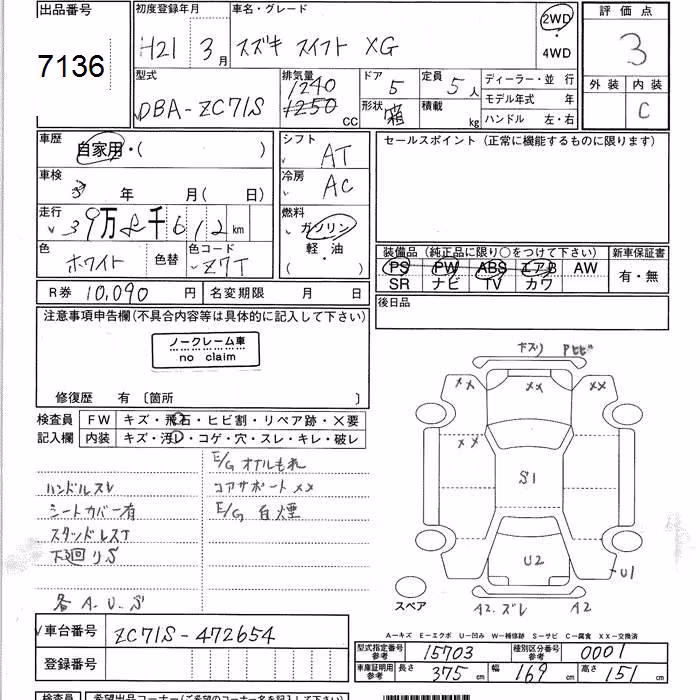 出品番号
7136
初度登録年月
H21 3月
車名・グレード
スズキ スイフト XG
2WD
4WD
評価点
3
外装 内装
C
型式
DBA-ZC71S
排気量
1240
1250 CC
ドア
5
定員
5人
形状
箱
積載
kg
ディーラー・並行
モデル年式 年
ハンドル 左・右
車歴
自家用・( )
シフト
AT
車検
年 月(日)
冷房
AC
走行
39万8千612km
燃料
ガソリン
軽・油
( )
色
ホワイト
色替
色コード
Z7T
R券 10,090円
名変期限 月 日
セールスポイント(正常に機能するものに限ります)
装備品(純正品に限り○をつけて下さい)
新車保証書
PS PW ABS エアB AW
SR ナビ TV カワ
有・無
後日品
注意事項申告欄(不具合内容等は具体的に記入して下さい)
ノークレーム車
no claim
修復歴 有〔箇所 〕
検査員
記入欄
FW キズ・飛石・ヒビ割・リペア跡・X要
内装 キズ・汚レ・コゲ・穴・スレ・キレ・破レ
E/G オイルもれ
ハンドルスレ
コアサポート XX
シートカバー有
E/G 白煙
下廻りS
各 A.U.S
下ズリ Pヒビ
XX XX XX
XX
S1
U2
U1
スペア
A2.ズレ A2
A-キズ E-エクボ U-凹み W-補修跡 S-サビ C-腐食 XX-交換済
車台番号
ZC71S-472654
登録番号
型式指定番号
参考
15703
種別区分番号
参考
0001
車庫証明用
参考
長さ 375cm
幅 169cm
高さ 151cm
検査員
希望出品コーナー(ご希望のコーナー名を記入下さい)